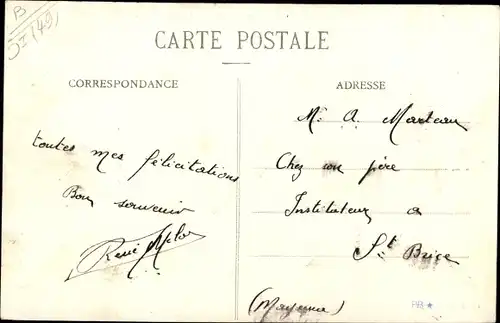 B
(49)
CARTE POSTALE
CORRESPONDANCE
toutes mes félicitations
Bon souvenir
René
ADRESSE
M. A. Marteau
Chez son père
Instituteur a
St Brice
(Mayenne)
PB *